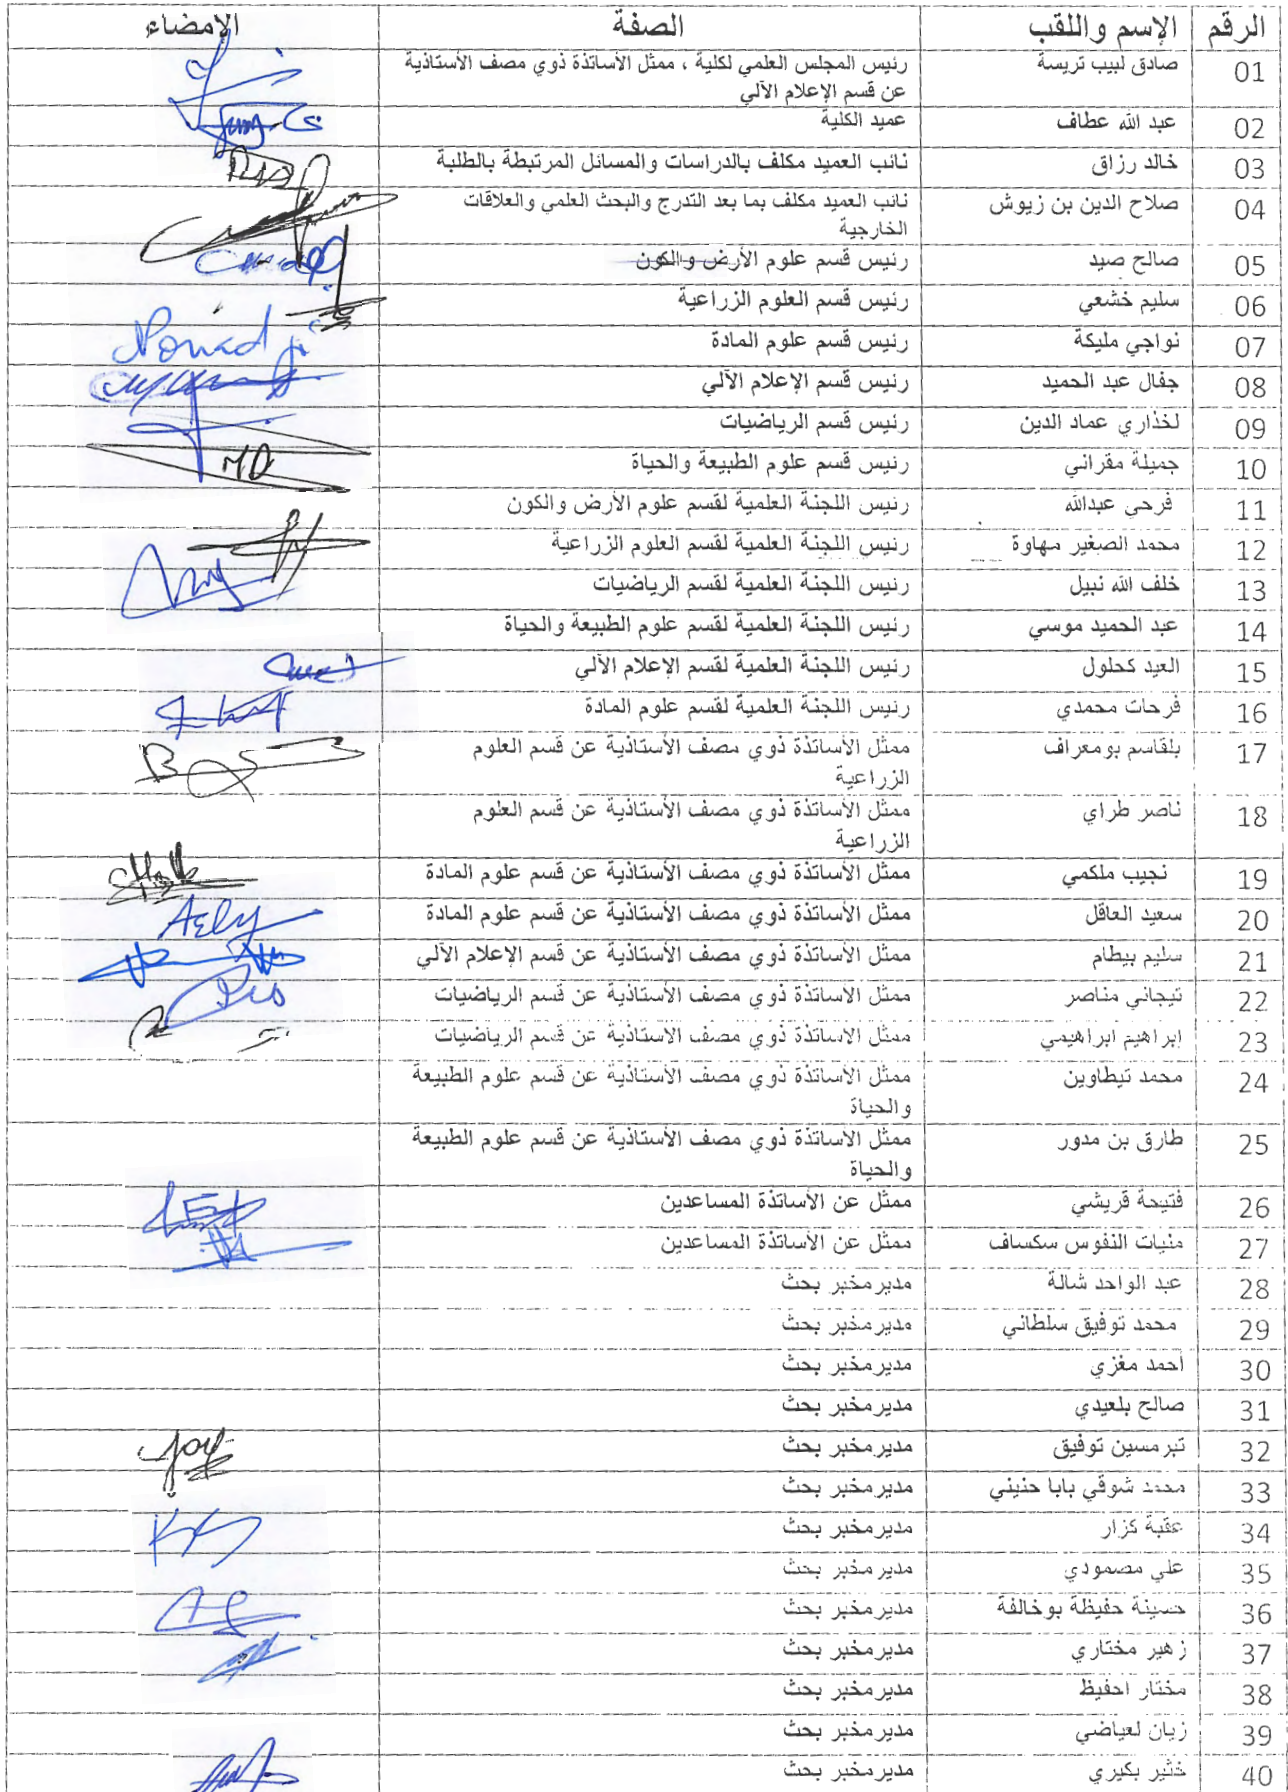 الرقم الإسم واللقب الصفة الإمضاء
01 صادق لبيب تريسة رئيس المجلس العلمي لكلية ، ممثل الأساتذة ذوي مصف الأستاذية
عن قسم الإعلام الآلي
02 عبد الله عطاف عميد الكلية
03 خالد رزاق نائب العميد مكلف بالدراسات والمسائل المرتبطة بالطلبة
04 صلاح الدين بن زيوش نائب العميد مكلف بما بعد التدرج والبحث العلمي والعلاقات
الخارجية
05 صالح صيد رئيس قسم علوم الأرض والكون
06 سليم خشعي رئيس قسم العلوم الزراعية
07 نواجي مليكة رئيس قسم علوم المادة Nouadji
08 جفال عبد الحميد رئيس قسم الإعلام الآلي
09 لخذاري عماد الدين رئيس قسم الرياضيات
10 جميلة مقراني رئيس قسم علوم الطبيعة والحياة
11 فرحي عبدالله رئيس اللجنة العلمية لقسم علوم الأرض والكون
12 محمد الصغير مهاوة رئيس اللجنة العلمية لقسم العلوم الزراعية
13 خلف الله نبيل رئيس اللجنة العلمية لقسم الرياضيات
14 عبد الحميد موسي رئيس اللجنة العلمية لقسم علوم الطبيعة والحياة
15 العيد كحلول رئيس اللجنة العلمية لقسم الإعلام الآلي
16 فرحات محمدي رئيس اللجنة العلمية لقسم علوم المادة
17 بلقاسم بومعراف ممثل الأساتذة ذوي مصف الأستاذية عن قسم العلوم
الزراعية
18 ناصر طراي ممثل الأساتذة ذوي مصف الأستاذية عن قسم العلوم
الزراعية
19 نجيب ملكمي ممثل الأساتذة ذوي مصف الأستاذية عن قسم علوم المادة
20 سعيد العاقل ممثل الأساتذة ذوي مصف الأستاذية عن قسم علوم المادة
21 سليم بيطام ممثل الأساتذة ذوي مصف الأستاذية عن قسم الإعلام الآلي
22 تيجاني مناصر ممثل الأساتذة ذوي مصف الأستاذية عن قسم الرياضيات
23 إبراهيم ابراهيمي ممثل الأساتذة ذوي مصف الأستاذية عن قسم الرياضيات
24 محمد تيطاوين ممثل الأساتذة ذوي مصف الأستاذية عن قسم علوم الطبيعة
والحياة
25 طارق بن مدور ممثل الأساتذة ذوي مصف الأستاذية عن قسم علوم الطبيعة
والحياة
26 فتيحة قريشي ممثل عن الأساتذة المساعدين
27 منيات النفوس سكساف ممثل عن الأساتذة المساعدين
28 عبد الواحد شالة مدير مخبر بحث
29 محمد توفيق سلطاني مدير مخبر بحث
30 احمد مغزي مدير مخبر بحث
31 صالح بلعيدي مدير مخبر بحث
32 تبرمسين توفيق مدير مخبر بحث
33 محمد شوقي بابا حنيني مدير مخبر بحث
34 عقبة كزار مدير مخبر بحث
35 علي مصمودي مدير مخبر بحث
36 حسينة حفيظة بوخالفة مدير مخبر بحث
37 زهير مختاري مدير مخبر بحث
38 مختار احفيظ مدير مخبر بحث
39 زيان لعياضي مدير مخبر بحث
40 خثير بكيري مدير مخبر بحث